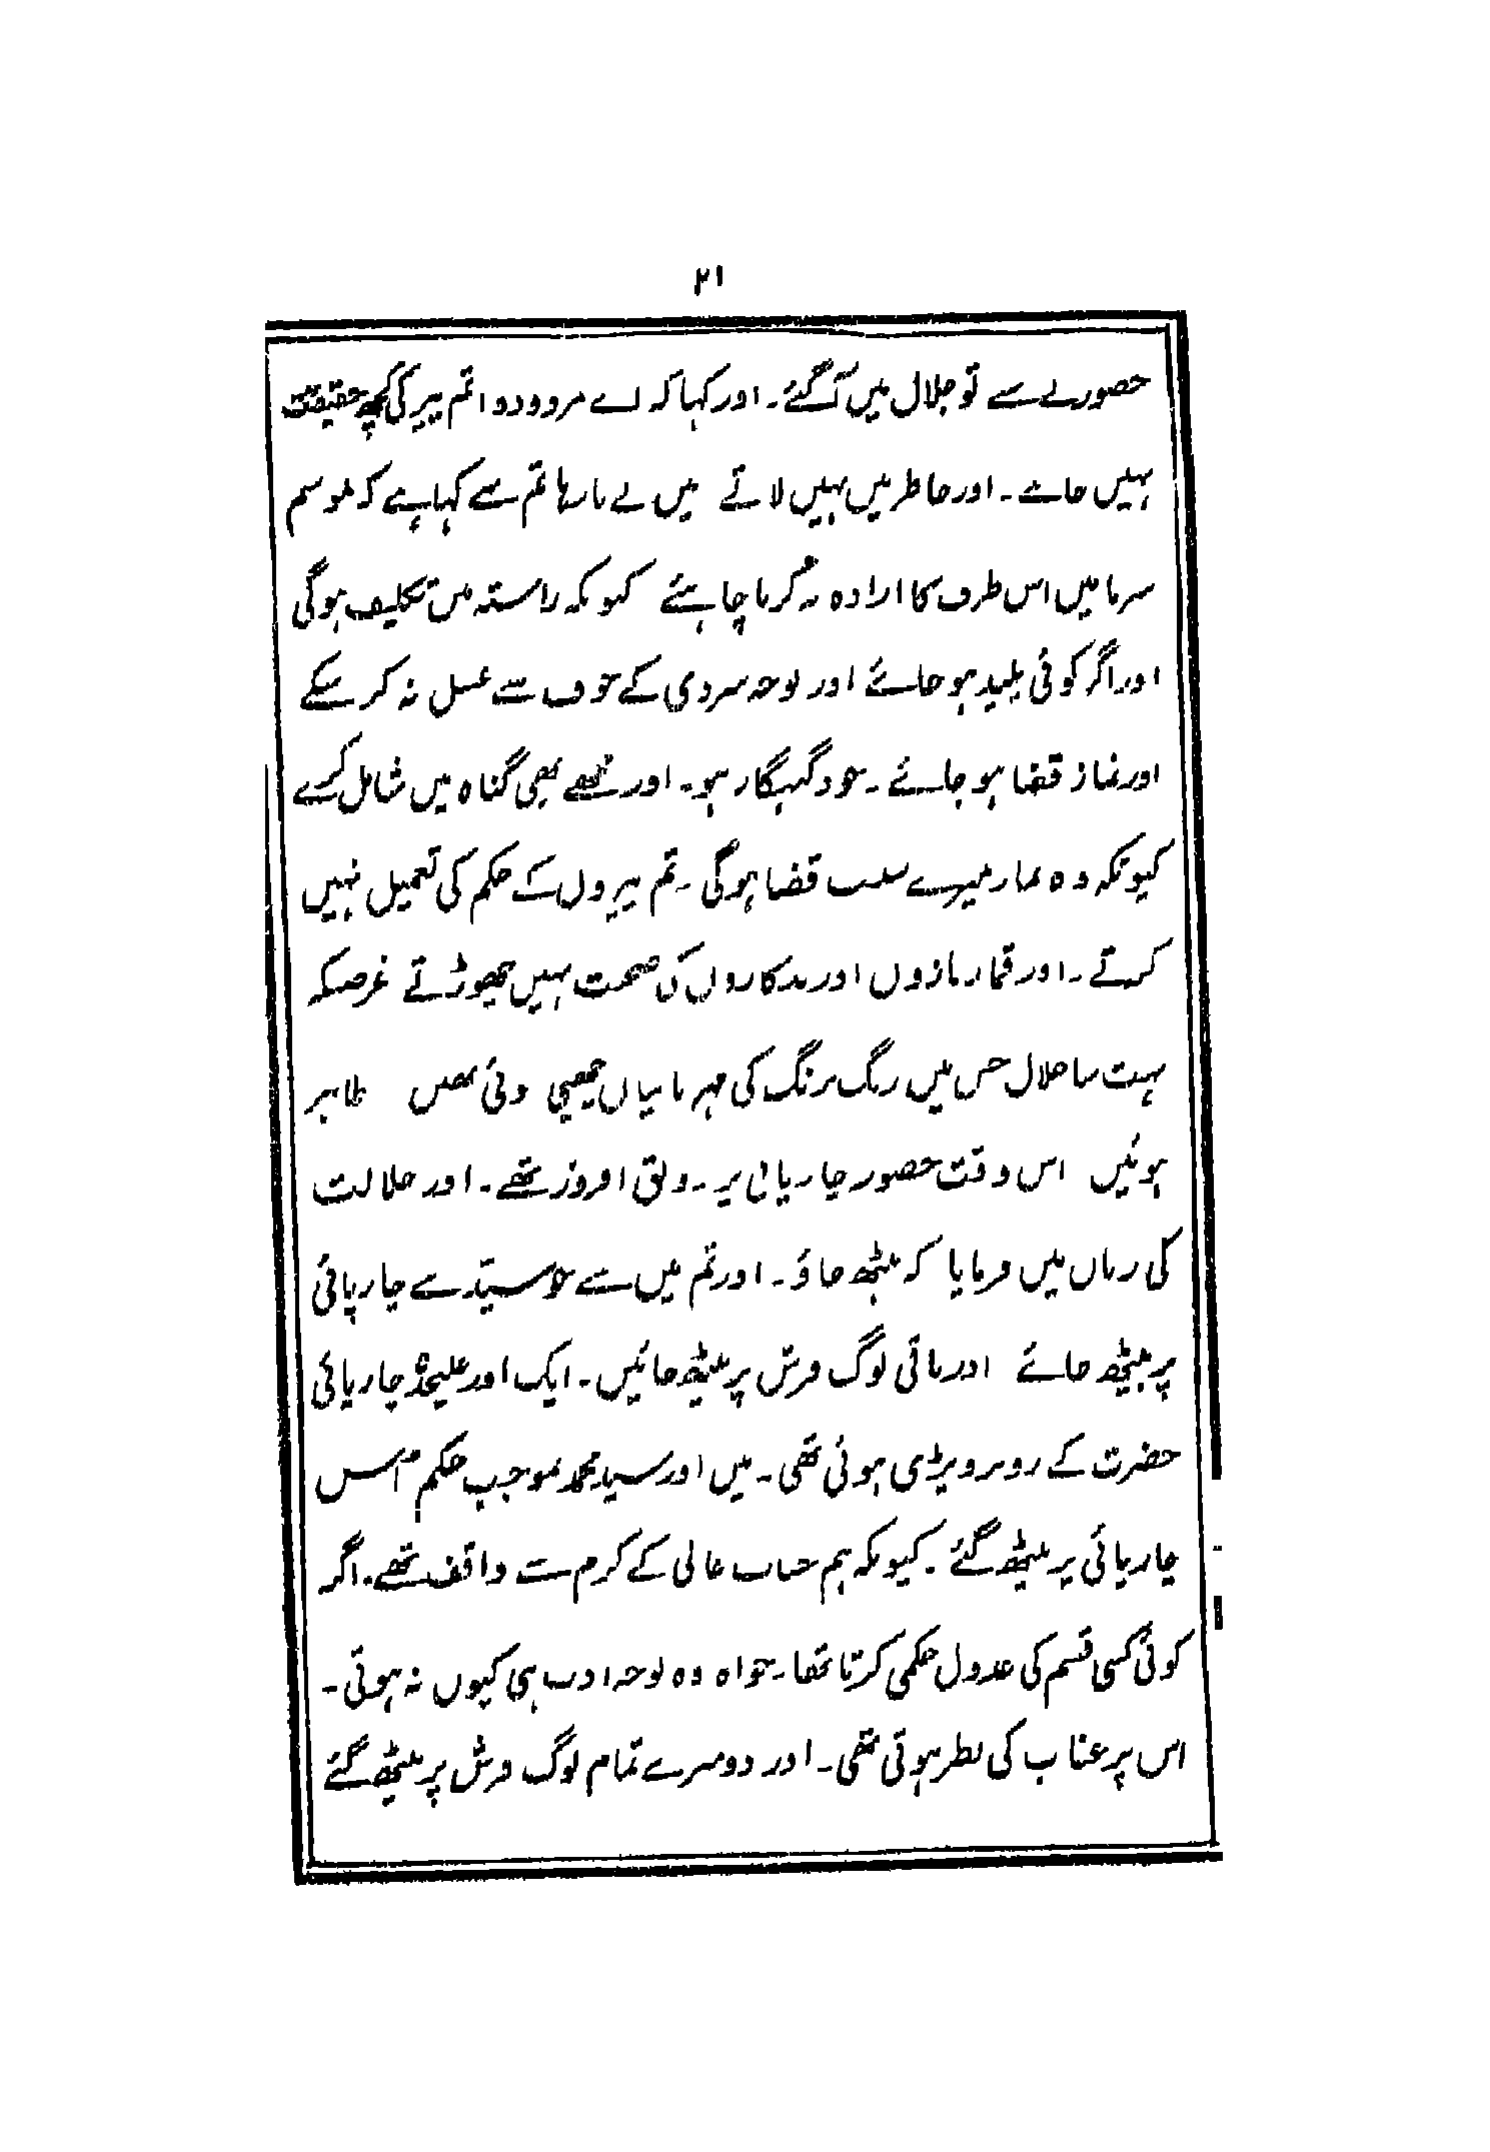 ۲۱
حضور نے سے تو جلال میں آ گئے۔ اور کہا کہ اے مردودو! تم پیر کی کچھ حقیقت
نہیں جانتے۔ اور خاطر میں نہیں لاتے میں نے بارہا تم سے کہا ہے کہ موسم
سرما میں اس طرف کا ارادہ نہ کرنا چاہئے کیونکہ راستہ میں تکلیف ہوگی
اور اگر کوئی پلید ہو جائے اور بوجہ سردی کے خوف سے غسل نہ کر سکے
اور نماز قضا ہو جائے۔ خود گنہگار ہو۔ اور مجھے بھی گناہ میں شامل کرے
کیونکہ وہ نماز میرے سبب قضا ہوگی۔ تم پیروں کے حکم کی تعمیل نہیں
کرتے۔ اور قمار بازوں اور بدکاروں کی صحبت نہیں چھوڑتے غرضکہ
بہت سا جلال جس میں رنگ برنگ کی مہربانیاں چھپی ہوئی تھیں ظاہر
ہوئیں اس وقت حضور چارپائی پر رونق افروز تھے۔ اور جلالت
کی زبان میں فرمایا کہ بیٹھ جاؤ۔ اور تم میں سے جو سید ہے چارپائی
پر بیٹھ جائے اور باقی لوگ فرش پر بیٹھ جائیں۔ ایک اور علیحدہ چارپائی
حضرت کے روبرو پڑی ہوئی تھی۔ میں اور سید محمد بموجب حکم اس
چارپائی پر بیٹھ گئے۔ کیونکہ ہم جناب عالی کے کرم سے واقف تھے۔ اگر
کوئی کسی قسم کی عدول حکمی کرتا تھا۔ خواہ وہ بوجہ ادب ہی کیوں نہ ہوتی۔
اس پر عتاب کی نظر ہوتی تھی۔ اور دوسرے تمام لوگ فرش پر بیٹھ گئے